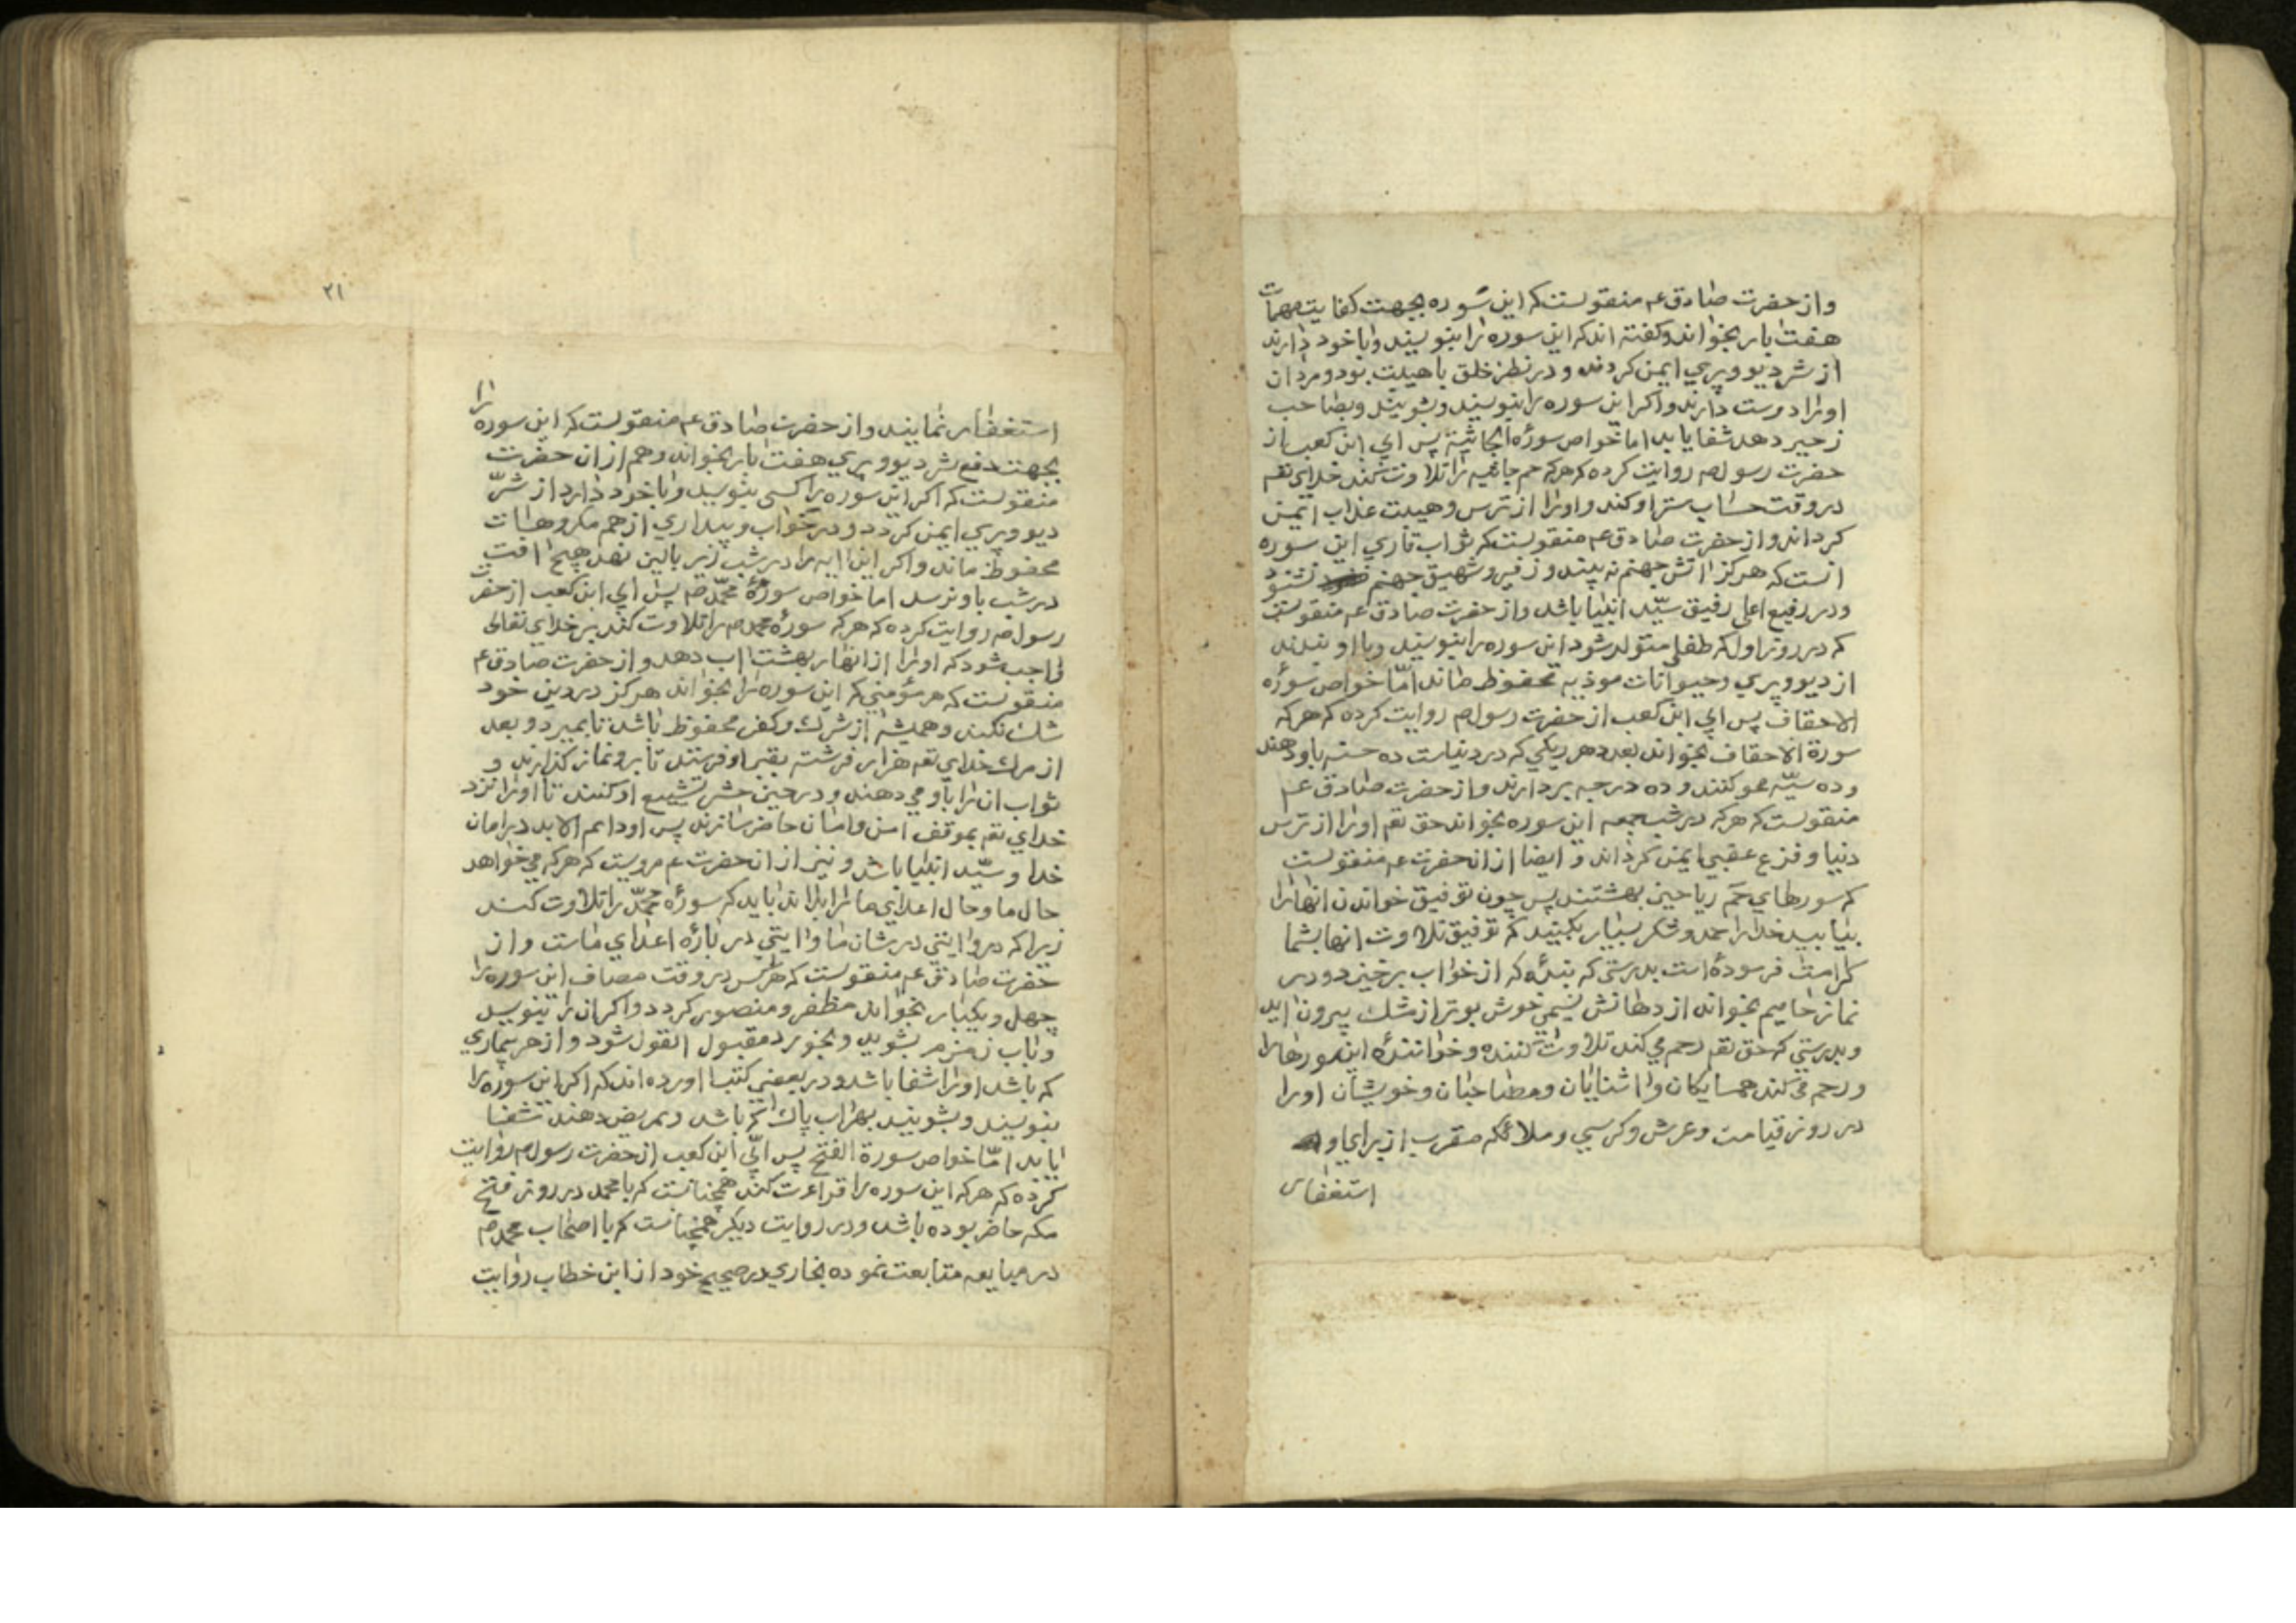 واز حضرت صادق عم منقولست که این سوره بجهت کفایت مهمات
هفت بار بخواند وکفته اند که این سوره را بنویسند وبا خود دارند
از شر دیو وپری ایمن کردند ودر نظر خلق با هیبت بود ومردان
اورا دوست دارند واکر این سوره را بنویسند وبشویند وبصاحب
زحیر دهد شفا یابد اما خواص سورة الجاثیة پس ابی ابن کعب از
حضرت رسول صم روایت کرده که هرکه حم جاثیه را تلاوت کند خدای تعم
در وقت حساب ستر او کند واورا از ترس وهیبت عذاب ایمن
کرداند واز حضرت صادق عم منقولست که ثواب قاری این سوره
انست که هرکز اتش جهنم نه بیند وزفیر وشهیق جهنم نشنود
ودر رفیع اعلی رفیق سید انبیا باشد واز حضرت صادق عم منقولست
که در روز اول که طفل متولد شود این سوره را بنویسند وبا او بندند
از دیو وپری وحیوانات موذیه محفوظ ماند اما خواص سورۀ
الاحقاف پس ابی ابن کعب از حضرت رسول صم روایت کرده که هرکه
سورة الاحقاف بخواند بعدد هر ریکی که در دنیاست ده حسنه باو دهند
وده سیئه محو کنند وده درجه بردارند واز حضرت صادق عم
منقولست که هرکه در شب جمعه این سوره بخواند حق تعم اورا از ترس
دنیا وفزع عقبی ایمن کرداند وایضا از انحضرت عم منقولست
که سورهای حم ریاحین بهشتند پس چون توفیق خواندن انها را
بیابید خدا را حمد وشکر بسیار بکنید که توفیق تلاوت انها بشما
کرامت فرموده است بدرستی که بنده که از خواب برخیزد ودر
نماز حامیم بخواند از دهانش نسیمی خوش بوتر از مشک بیرون اید
وبدرستی که حق تعم رحم می کند تلاوت کننده وخوانندۀ این سورها را
ورحم می کند همسایکان واشنایان ومصاحبان وخویشان اورا
در روز قیامت وعرش وکرسی وملائکه مقرب از برای او
استغفار
۲۱
استغفار نمایند واز حضرت صادق عم منقولست که این سوره را
بجهت دفع شر دیو وپری هفت بار بخواند وهم از ان حضرت
منقولست که اکر این سوره را کسی بنویسد وبا خود دارد از شر
دیو وپری ایمن کردد ودر خواب وبیداری از همه مکروهات
محفوظ ماند واکر این ایه را در شب زیر بالین نهد هیچ افت
در شب باو نرسد اما خواص سورۀ محمد صم پس ابی ابن کعب از حضرت
رسول صم روایت کرده که هرکه سورۀ محمد صم را تلاوت کند بر خدای تعالی
واجب شود که اورا از انهار بهشت اب دهد واز حضرت صادق عم
منقولست که هر مؤمنی که این سوره را بخواند هرکز در دین خود
شک نکند وهمیشه از شرک وکفر محفوظ باشد تا بمیرد وبعد
از مرک خدای تعم هزار فرشته بقبر او فرستد تا برو نماز کذارند و
ثواب ان را باو می دهند ودر حین حشر تشییع او کنند تا اورا نزد
خدای تعم بموقف امن وامان حاضر سازند پس او دایم الابد در امان
خدا وسید انبیا باشد ونیز از انحضرت عم مرویست که هرکه می خواهد
حال ما وحال اعدای ما را بداند باید که سورۀ محمد را تلاوت کند
زیرا که در او ایتی در شان ما وایتی در بارۀ اعدای ماست واز
حضرت صادق عم منقولست که هرکس در وقت مصاف این سوره را
چهل ویکبار بخواند مظفر ومنصور کردد واکر ان را بنویسد
وباب زمزم بشوید وبخورد مقبول القول شود واز هر بیماری
که باشد اورا شفا باشد ودر بعضی کتبها اورده اند که اکر این سوره را
بنویسند وبشویند بهر اب پاک که باشد وبمریض دهند شفا
یابد اما خواص سورة الفتح پس ابی ابن کعب از حضرت رسول صم روایت
کرده که هرکه این سوره را قراءت کند همچنانست که با محمد در روز فتح
مکه حاضر بوده باشد ودر روایت دیکر همچنانست که با اصحاب محمد صم
در مبایعه متابعت نموده بخاری در صحیح خود از ابن خطاب روایت